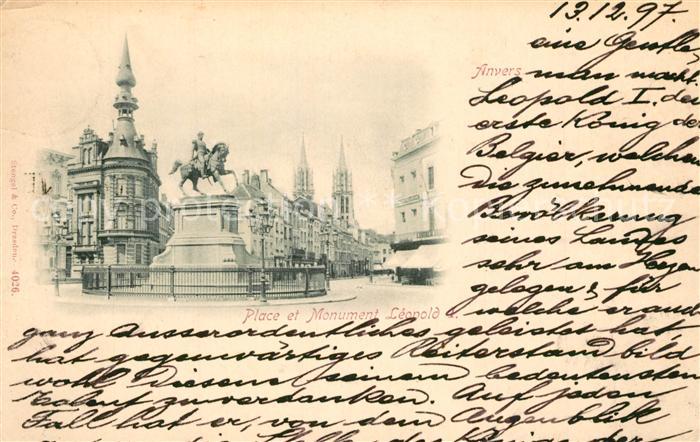 13.12.97
Anvers
eine Gentle,
man macht
Leopold I. der
erste König der
Belgier, welchem
die zunehmende
Bevölkerung
seines Landes
sehr am Herzen
gelegen & für
welche er auch
Stengel & Co., Dresden
4026.
Place et Monument Léopold I.
ganz Ausserordentliches geleistet hat
hat gegenwärtiges Reiterstandbild
wohl diesem seinem bedeutensten
zu verdanken. Auf jeden
Fall hat er, von dem Augenblik